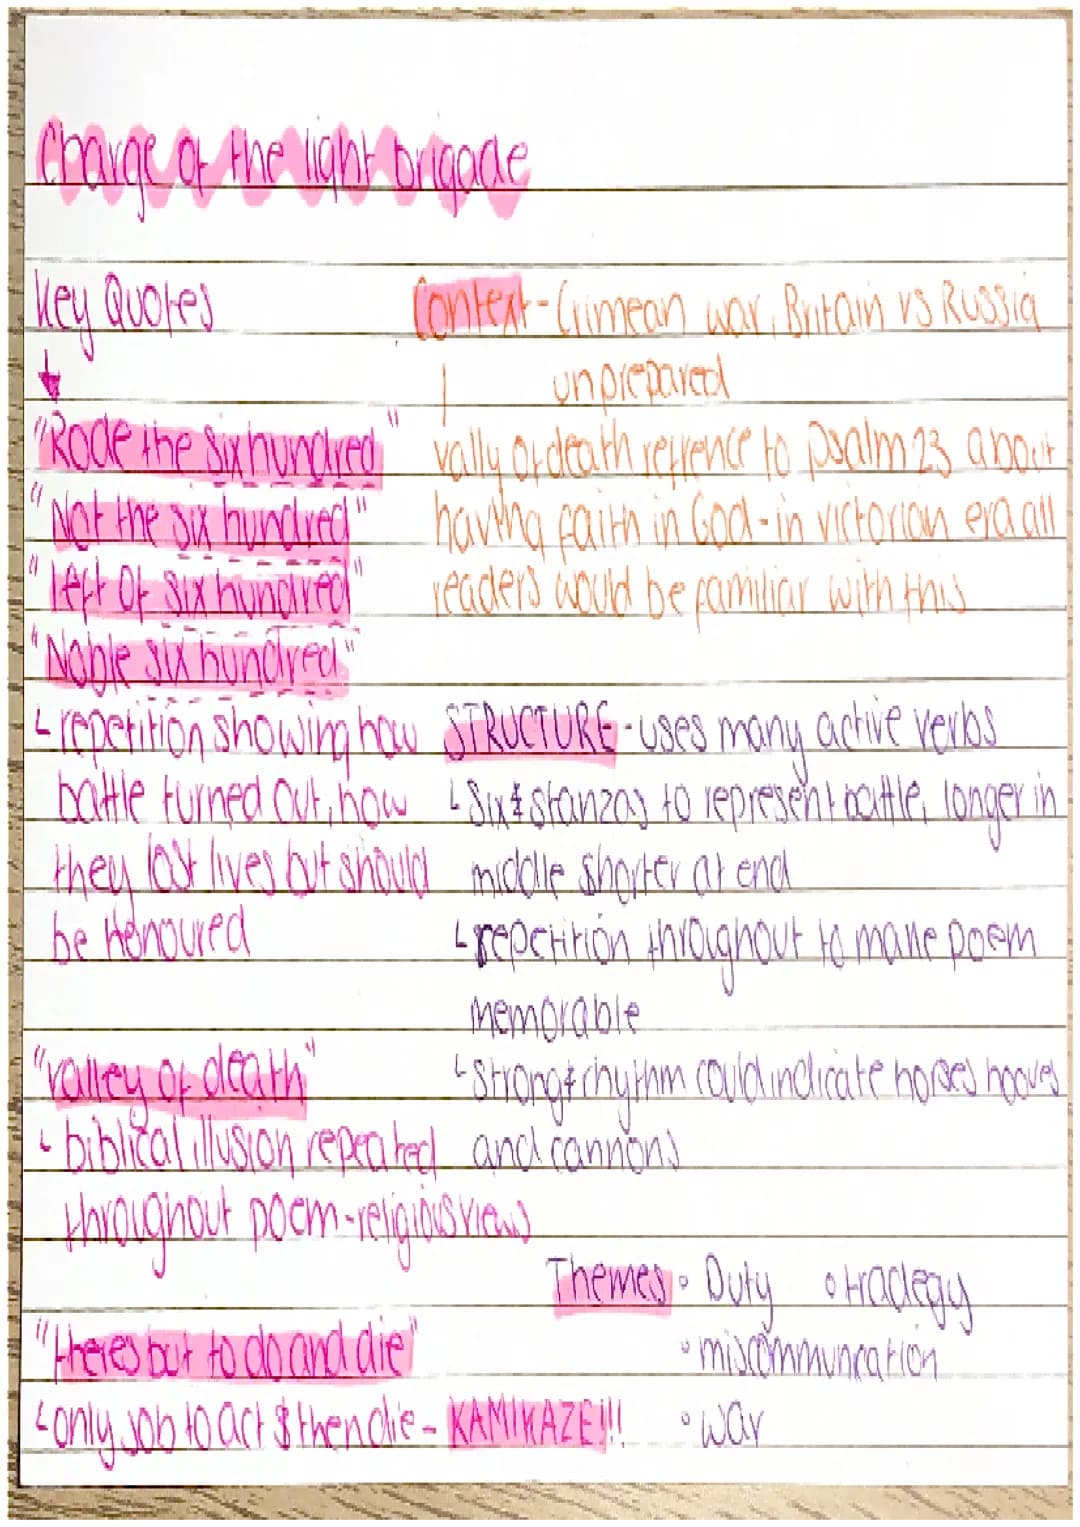 Charge of the light brigade
Key Quotes
"Rode the six hundred"
"Not the six hundred"
"left of six hundred"
"Noble six hundred"
↳ repetition showing how
battle turned out, how
they lost lives but should
be honoured
"valley of death"
↳ biblical illusion repeated
throughout poem - religious views
"theres but to do and die"
↳ only job to act & then die - KAMIKAZE!!!
Context - Crimean war, Britain vs Russia
unprepared
vally of death refrence to psalm 23 about
having faith in God - in victorian era all
readers would be familiar with this
STRUCTURE - uses many active verbs
↳ Six stanzas to represent battle, longer in
middle shorter at end
↳ repetition throughout to make poem
memorable
↳ strong rhythm could indicate horses hooves
and cannons
Themes • Duty • tradegy
• miscommuncation
• war